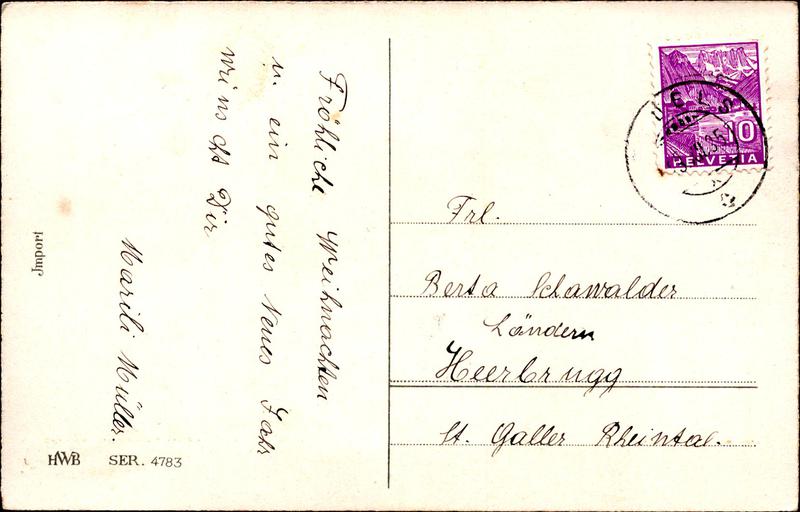 Fröhliche Weihnachten
u. ein gutes Neues Jahr
wünscht Dir
Marili Müller.
Import
HWB SER. 4783
10
HELVETIA
Frl.
Berta Schawalder
Ländern
Heerbrugg
St. Galler Rheintal.